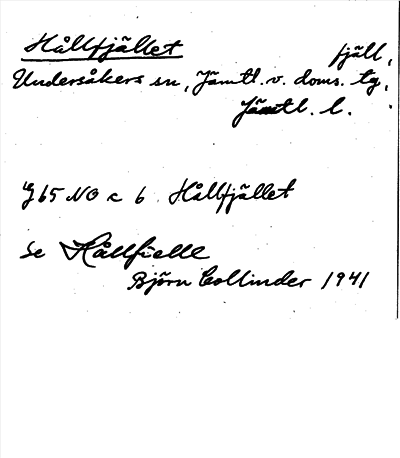 Hållfjället fjäll,
Undersåkers sn, Jämtl. v. doms. tg,
Jämtl. l.
65 NO c 6 Hållfjället
Se Hållfielle
Björn Collinder 1941